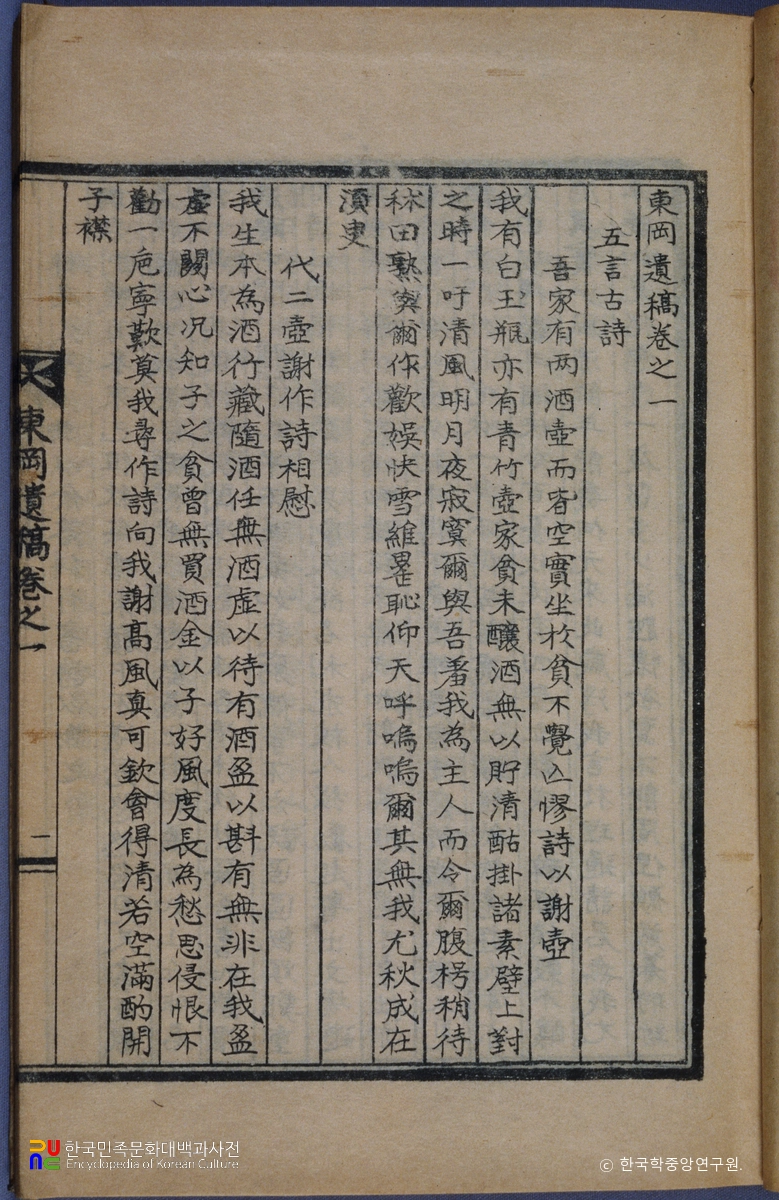 東岡遺稿卷之一
五言古詩
吾家有两酒壺而皆空實坐於貧不覺亾憀詩以謝壺
我有白玉瓶亦有青竹壺家貧未釀酒無以貯清酤掛諸素壁上對
之時一吁清風明月夜寂寞爾與吾畨我為主人而令爾腹枵稍待
秫田熟與爾作歡娛快雪維罍恥仰天呼嗚嗚爾其無我尤秋成在
須臾
代二壺謝作詩相慰
我生本為酒行藏隨酒任無酒虛以待有酒盈以斟有無非在我盈
虛不關心况知子之貧曾無買酒金以子好風度長為愁思侵恨不
勸一巵寧歎莫我尋作詩向我謝高風真可欽會得清若空滿酌開
子襟
東岡遺稿卷之一
一
한국민족문화대백과사전
Encyclopedia of Korean Culture
© 한국학중앙연구원.